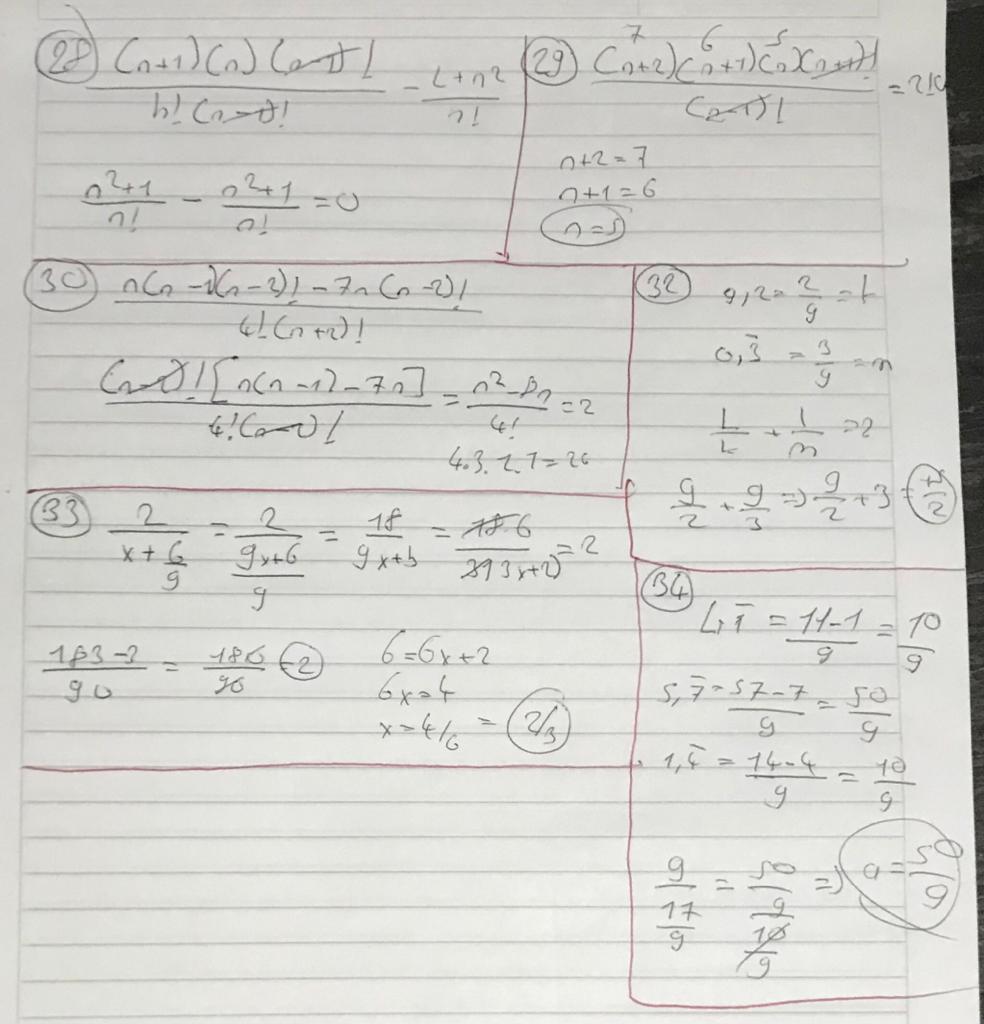 28 (n+1)(n)(n-1)! / n!(n-1)! - 1+n² / n!
n²+1 / n! - n²+1 / n! = 0
29 7 6 5
(n+2)(n+1)(n)(n-1)! / (n-1)! = 210
n+2=7
n+1=6
n=5
30 n(n-1)(n-2)! - 7n(n-2)! / 4!(n+2)!
(n-2)![n(n-1)-7n] / 4!(n-2)! = n²-8n / 4! = 2
4.3.2.1=24
32 0,2 = 2/9 = L
0,3̄ = 3/9 = m
1/L + 1/m = ?
9/2 + 9/3 => 9/2 + 3 =
33 2 / x+6/9 = 2 / 9x+6/9 = 18 / 9x+6 = 18 6 / 3(3x+2) = 2
183-3 / 90 = 180 / 90 = 2
6=6x+2
6x=4
x=4/6 = 2/3
34 1,1̄ = 11-1 / 9 = 10/9
5,7̄ = 57-7 / 9 = 50/9
1,4̄ = 14-4 / 9 = 10/9
9 / 17/9 = 50/9 / 10/9 => a =